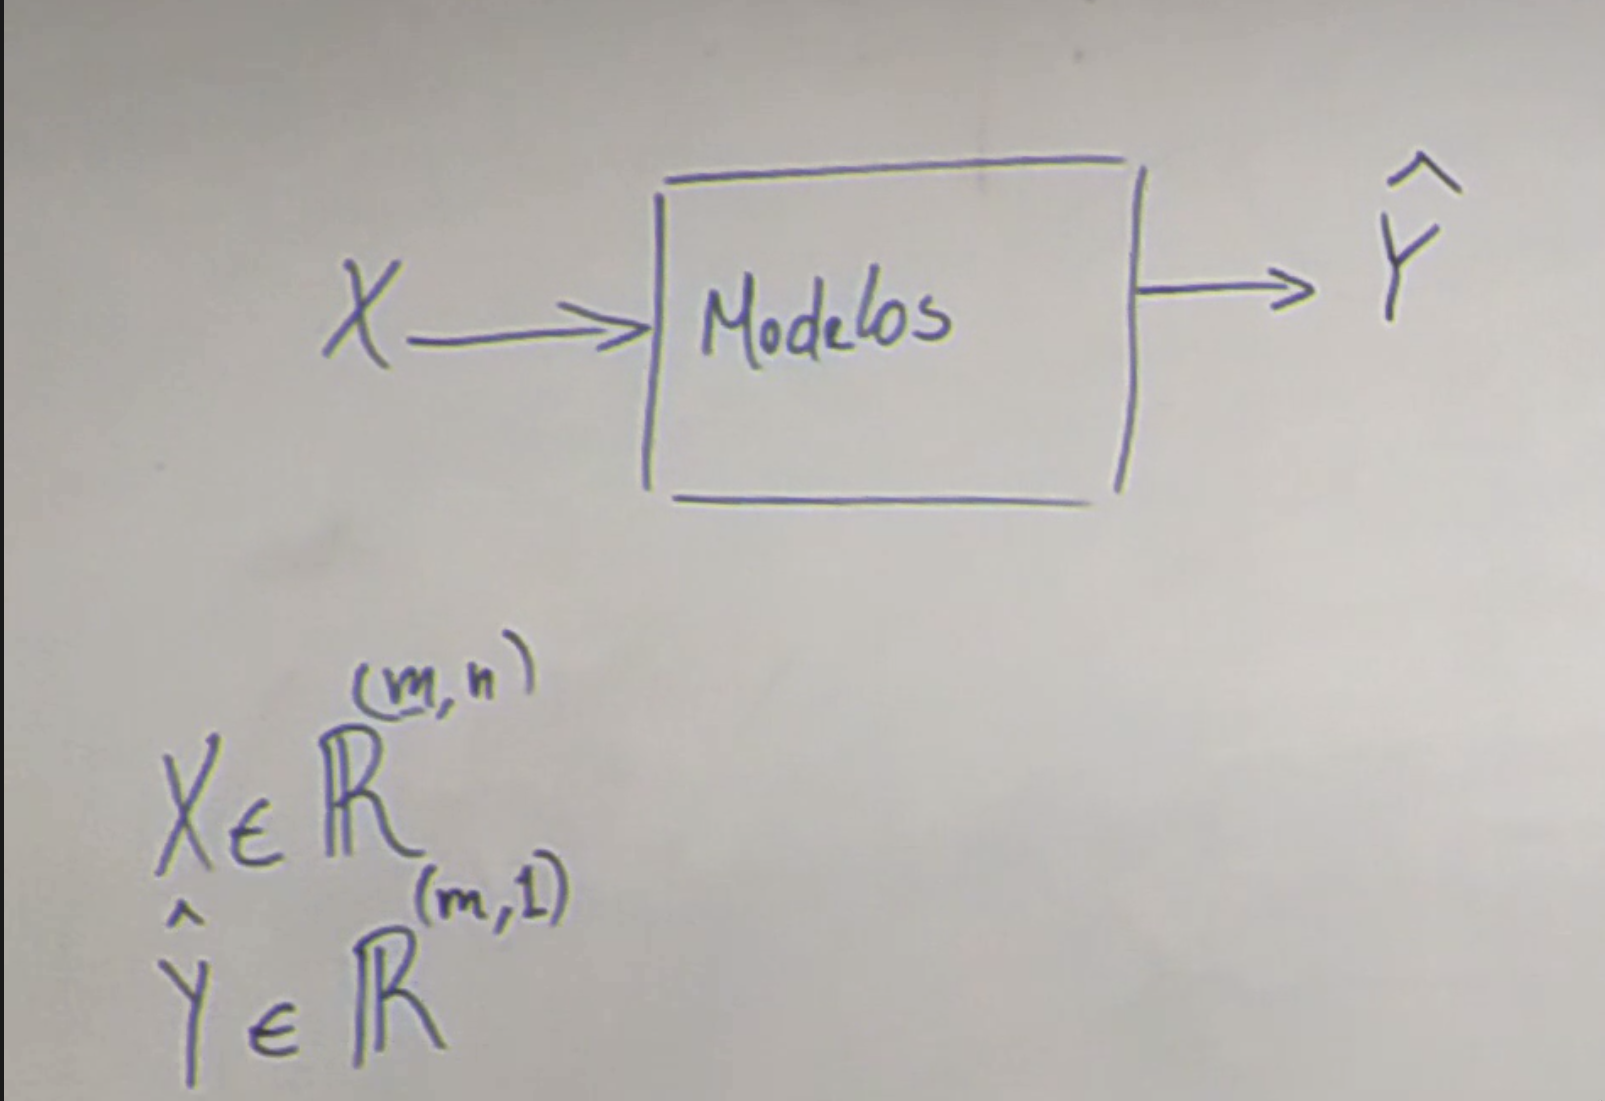 X → Modelos → Ŷ
X ∈ ℝ^(m,n)
Ŷ ∈ ℝ^(m,1)